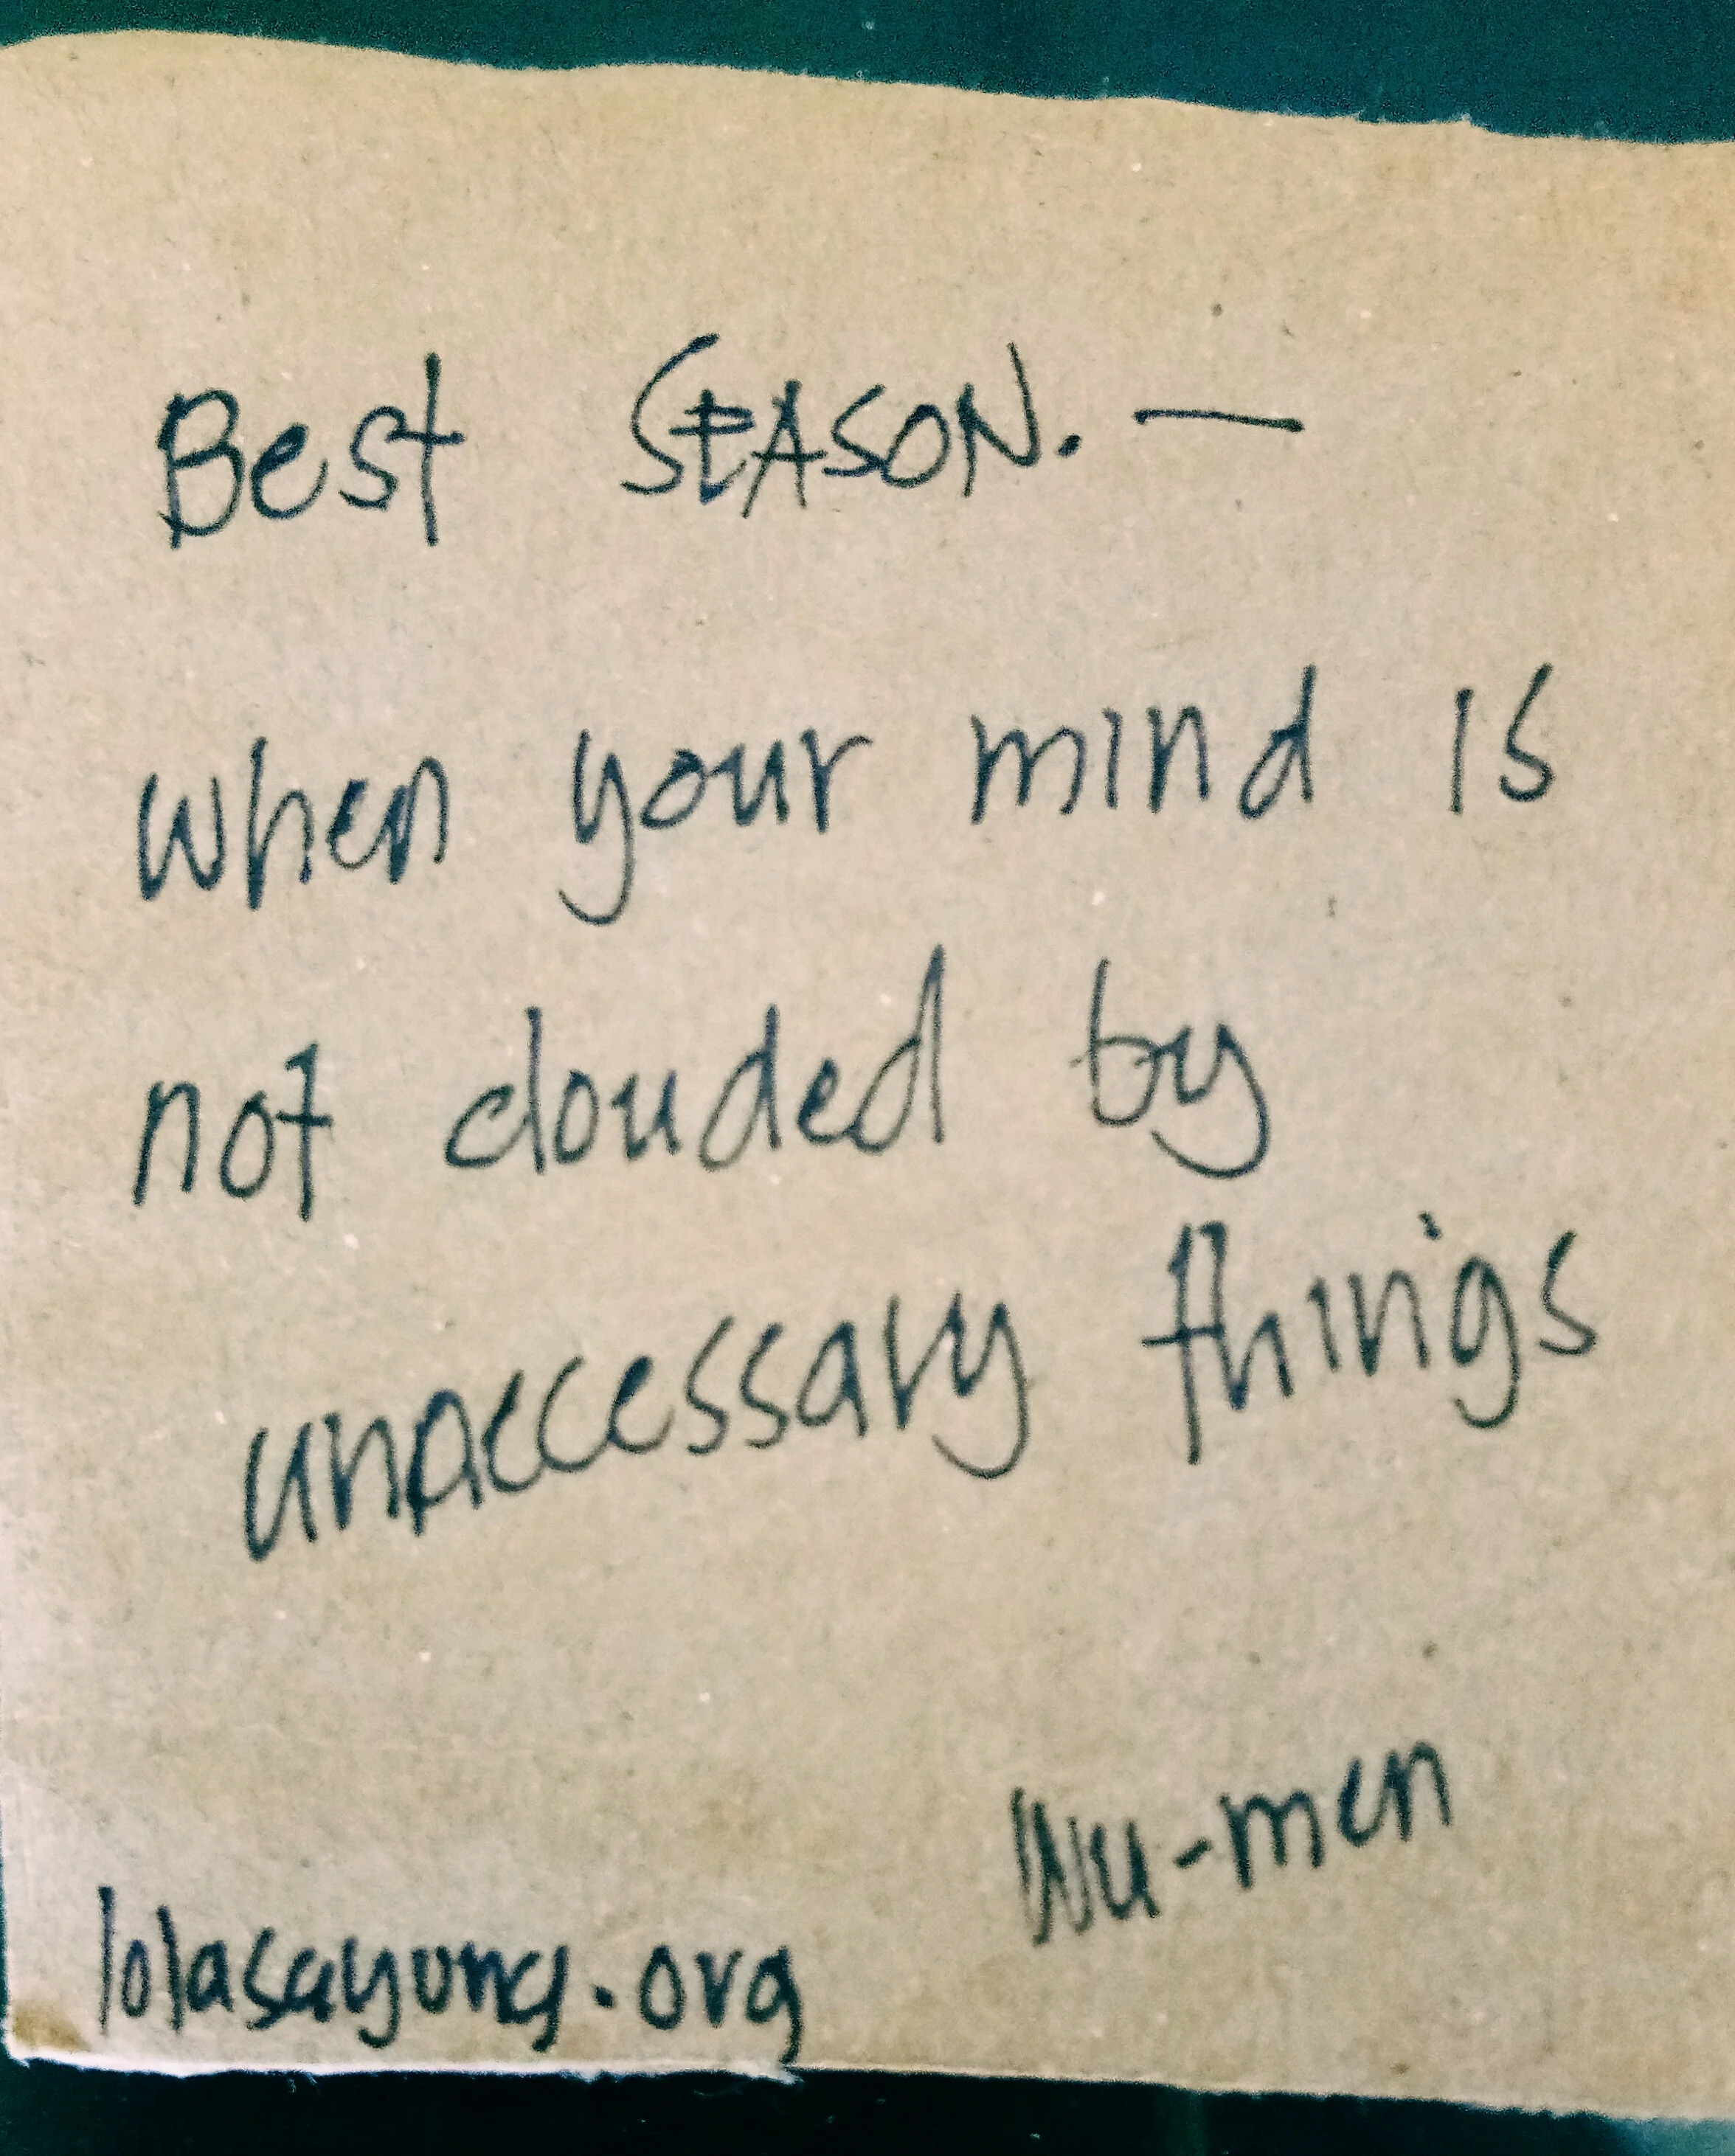 Best SEASON. —
when your mind is
not clouded by
unaccessary things
Wu-men
lolasayong.org